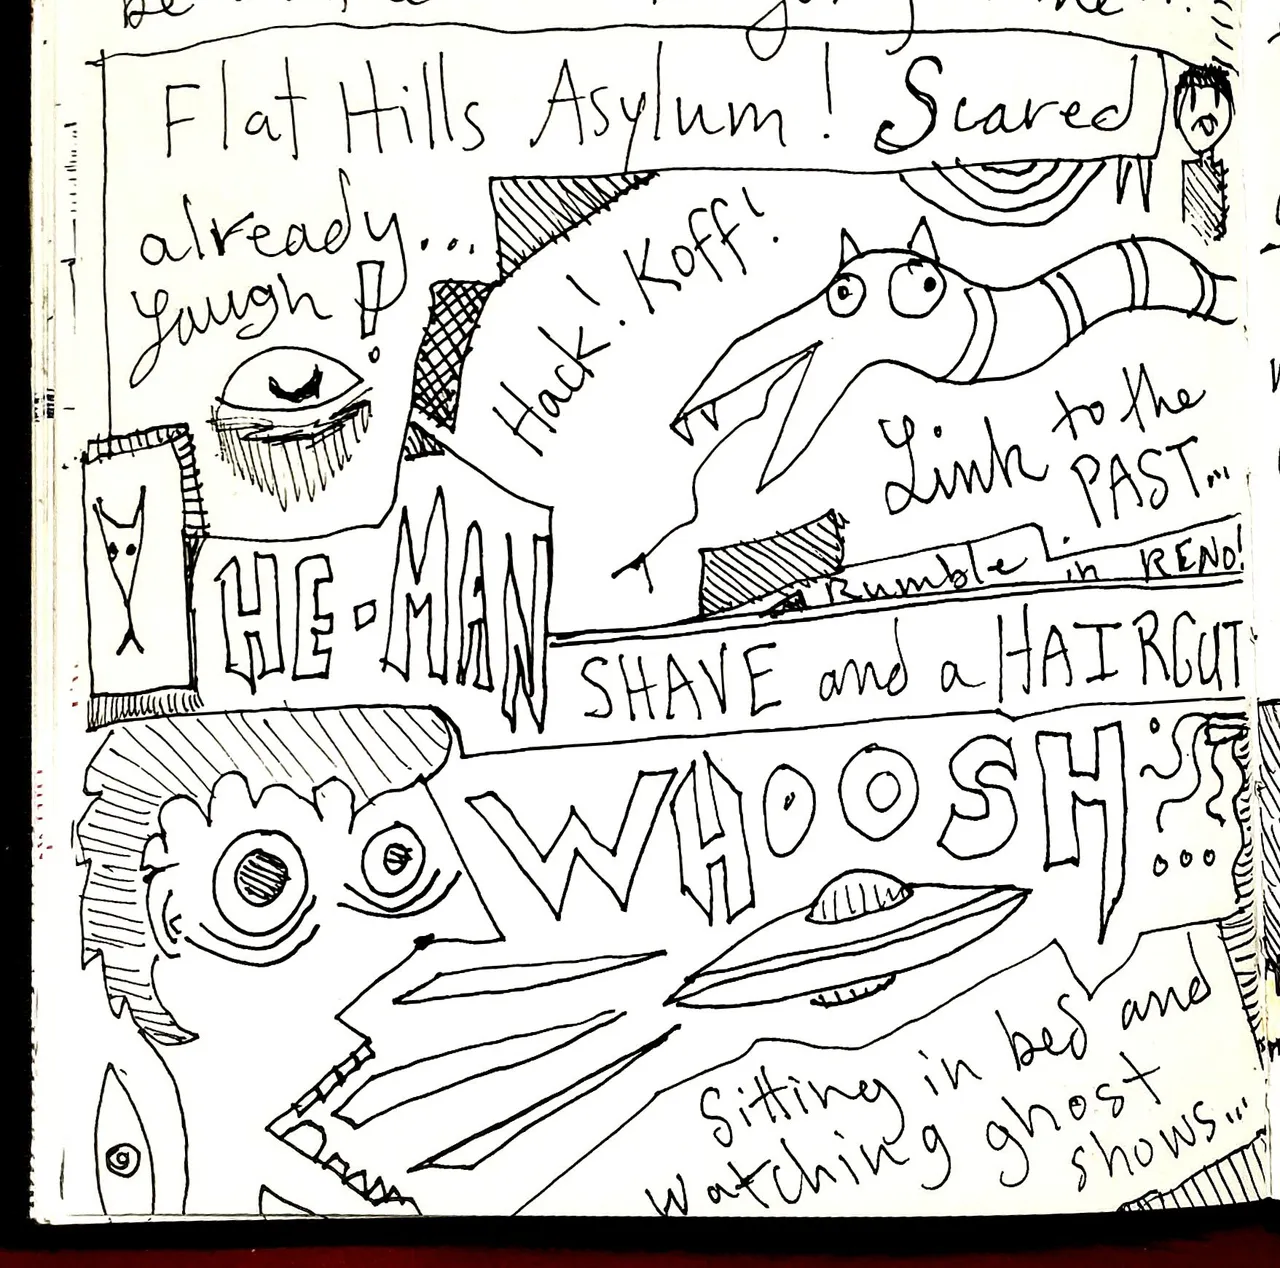 be
Flat Hills Asylum! Scared
already...
Yaugh!
Hack! Koff!
Link to the
PAST...
Rumble in RENO!
HE-MAN
SHAVE and a HAIRCUT
WHOOSH...
Sitting in bed and
watching ghost
shows...